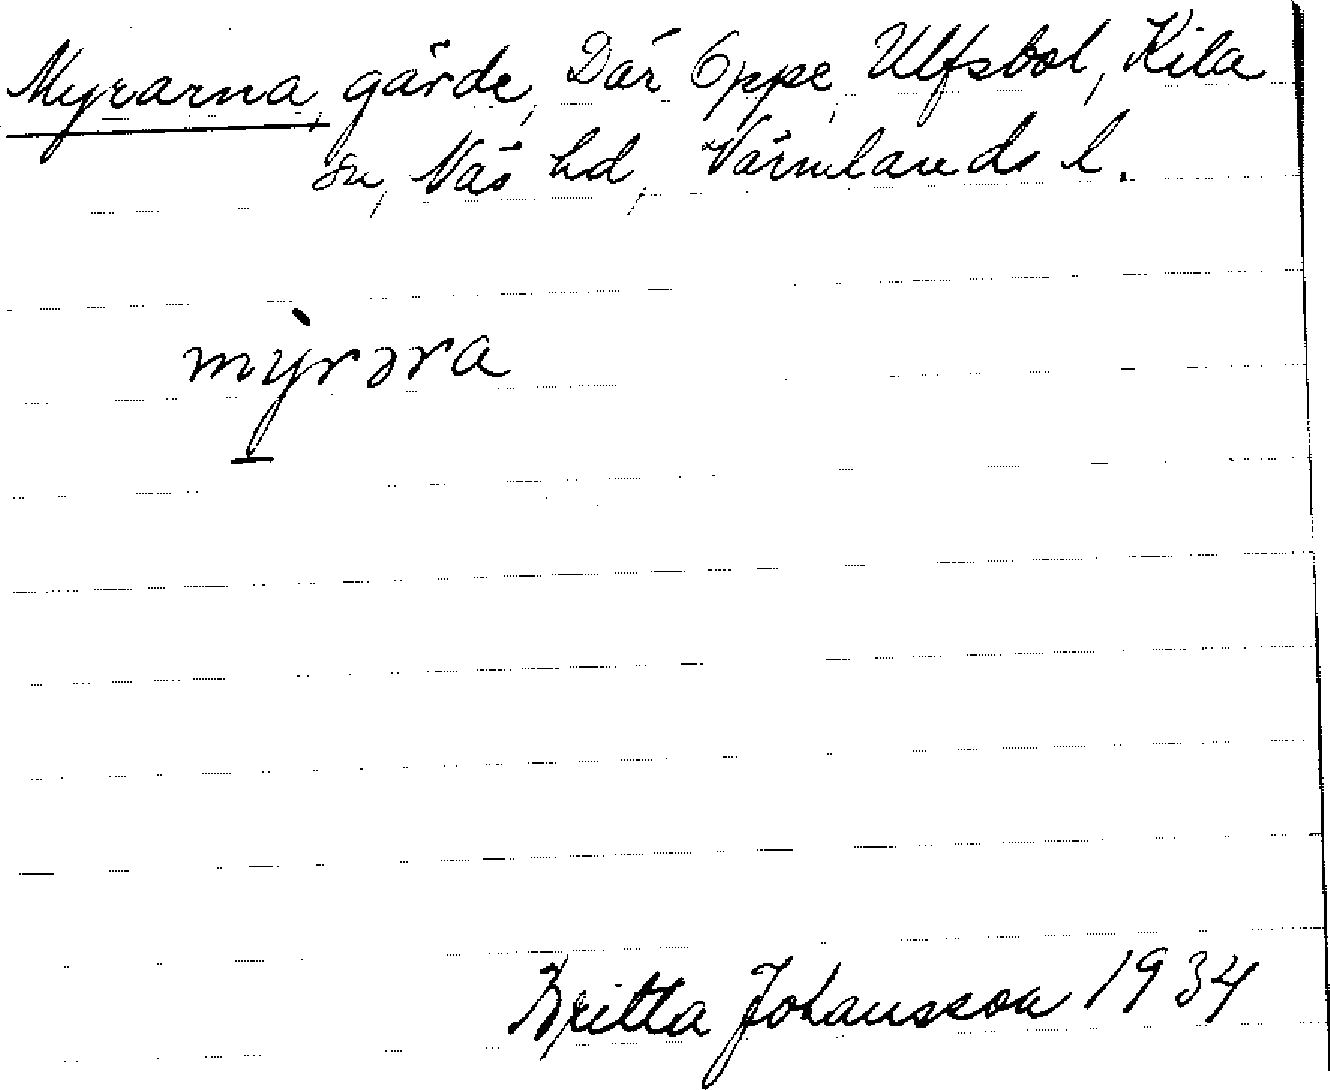 Myrarna, gärde, Där Oppe, Ulfsbol, Kila
sn, Näs hd, Värmlands l.
mỳrəra
Britta Johansson 1934